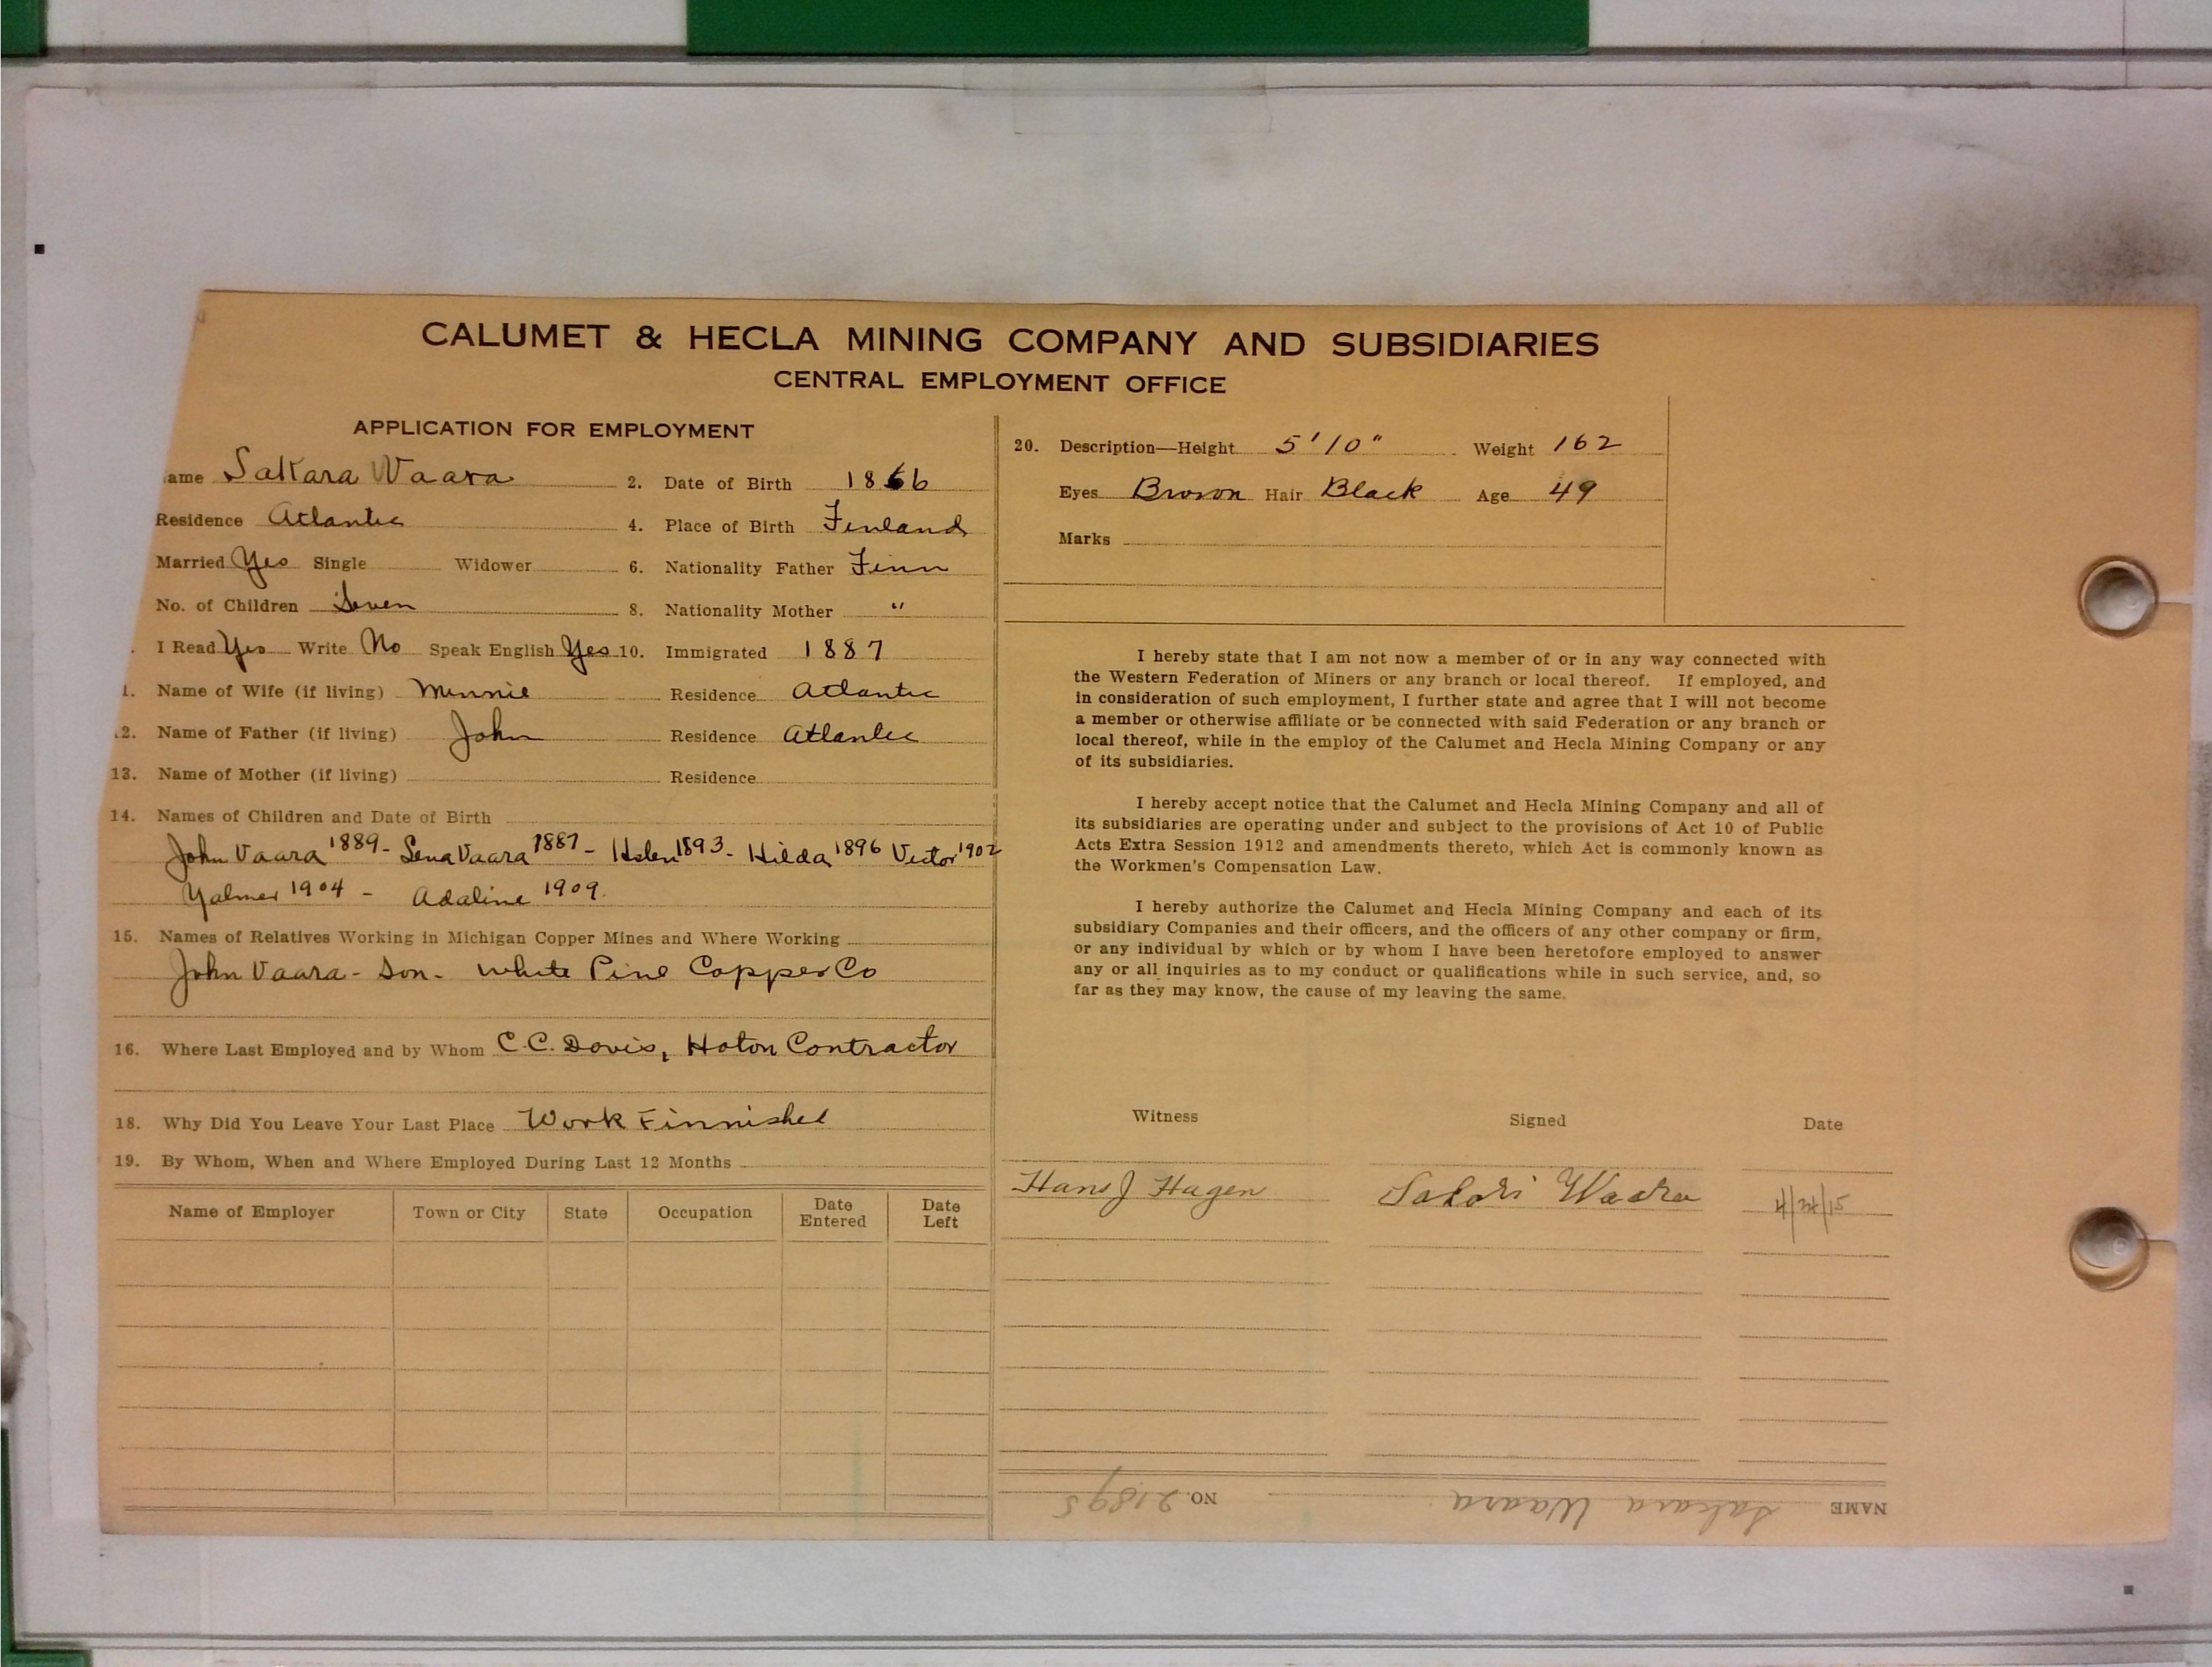 CALUMET & HECLA MINING COMPANY AND SUBSIDIARIES
CENTRAL EMPLOYMENT OFFICE
APPLICATION FOR EMPLOYMENT
ame Sakara Waara 2. Date of Birth 1866
Residence Atlantic 4. Place of Birth Finland
Married Yes Single Widower 6. Nationality Father Finn
No. of Children Seven 8. Nationality Mother "
. I Read Yes Write No Speak English Yes 10. Immigrated 1887
1. Name of Wife (if living) Minnie Residence Atlantic
2. Name of Father (if living) John Residence Atlantic
13. Name of Mother (if living) Residence
14. Names of Children and Date of Birth
John Vaara 1889 - Lena Vaara 1887 - Helen 1893 - Hilda 1896 Victor 1902
Yalmer 1904 - Adaline 1909.
15. Names of Relatives Working in Michigan Copper Mines and Where Working
John Vaara - Son - White Pine Copper Co
16. Where Last Employed and by Whom C.C. Davis, Hoton Contractor
18. Why Did You Leave Your Last Place Work Finnished
19. By Whom, When and Where Employed During Last 12 Months
Name of Employer Town or City State Occupation Date Entered Date Left
20. Description—Height 5'10" Weight 162
Eyes Brown Hair Black Age 49
Marks
I hereby state that I am not now a member of or in any way connected with
the Western Federation of Miners or any branch or local thereof. If employed, and
in consideration of such employment, I further state and agree that I will not become
a member or otherwise affiliate or be connected with said Federation or any branch or
local thereof, while in the employ of the Calumet and Hecla Mining Company or any
of its subsidiaries.
I hereby accept notice that the Calumet and Hecla Mining Company and all of
its subsidiaries are operating under and subject to the provisions of Act 10 of Public
Acts Extra Session 1912 and amendments thereto, which Act is commonly known as
the Workmen's Compensation Law.
I hereby authorize the Calumet and Hecla Mining Company and each of its
subsidiary Companies and their officers, and the officers of any other company or firm,
or any individual by which or by whom I have been heretofore employed to answer
any or all inquiries as to my conduct or qualifications while in such service, and, so
far as they may know, the cause of my leaving the same.
Witness Signed Date
Hans J Hagen Sakari Waara 4/24/15
NAME Sakara Waara NO. 21895